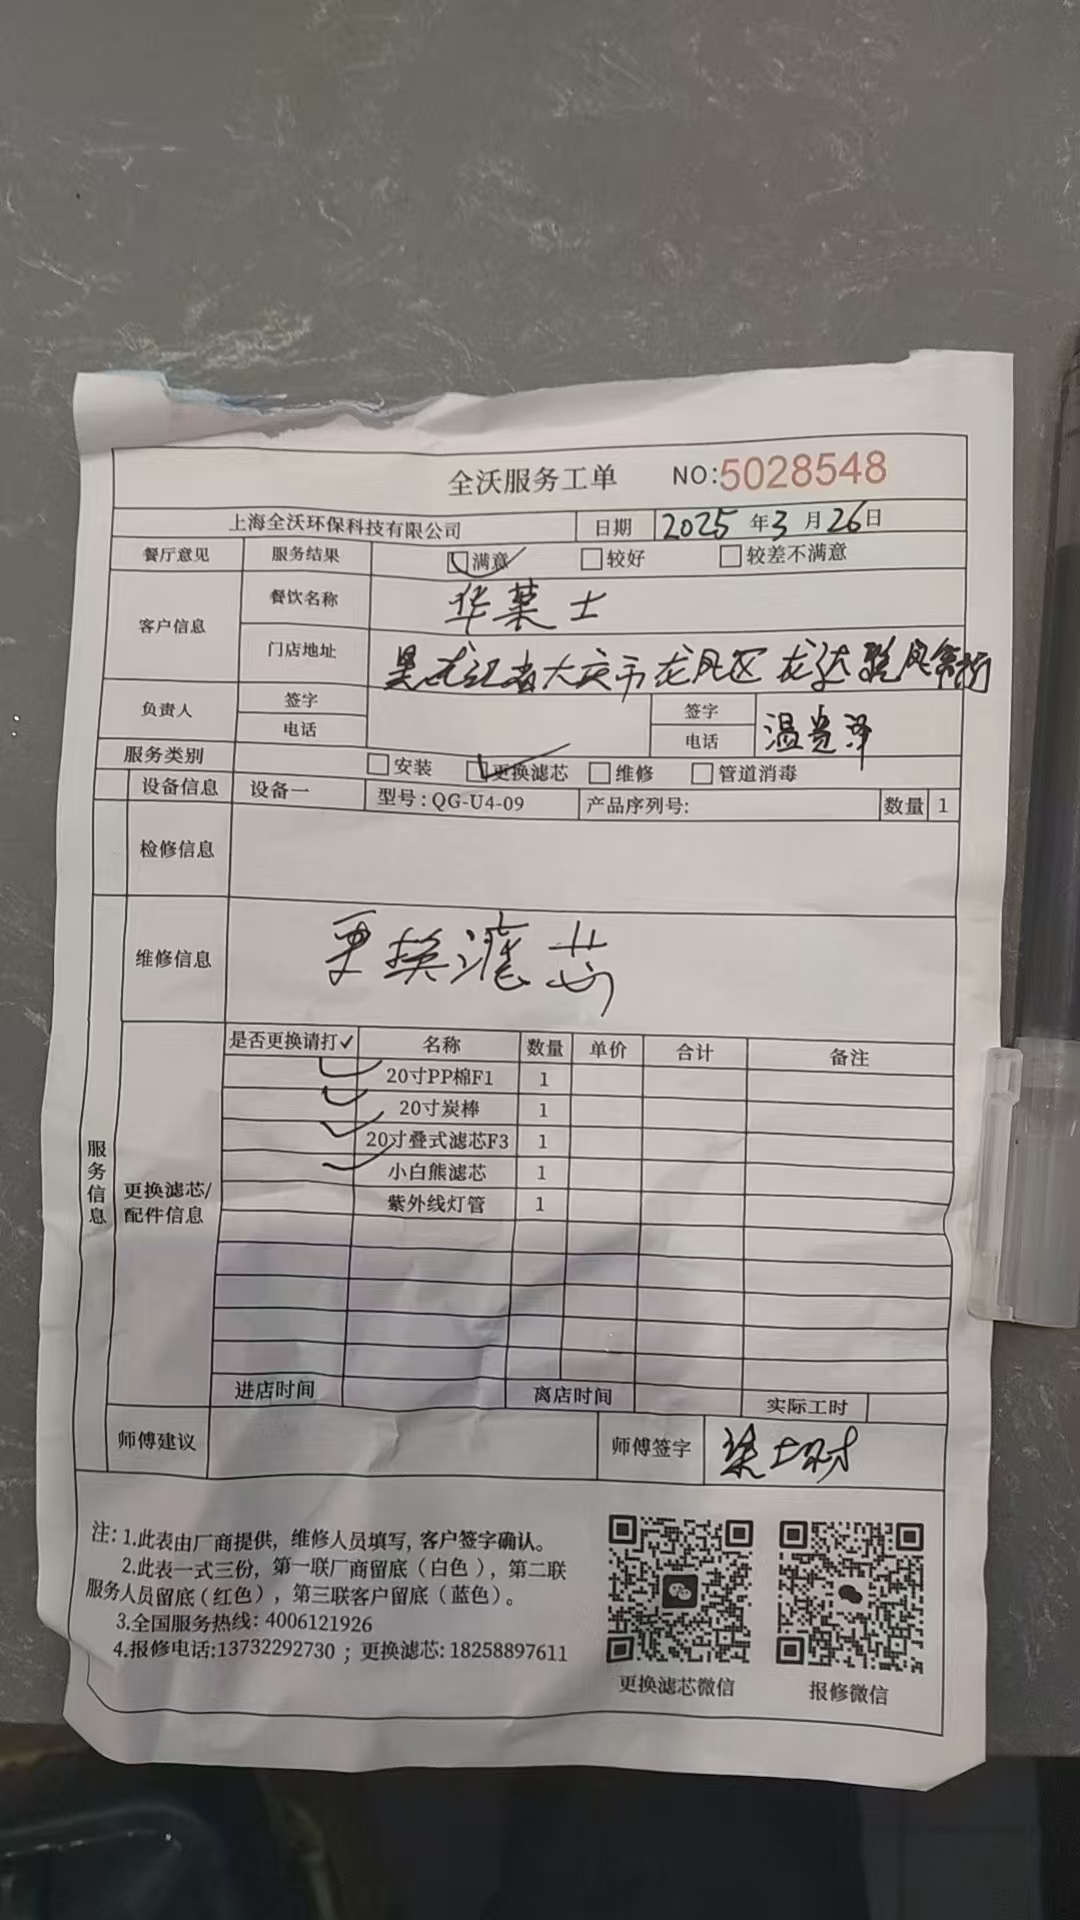 全沃服务工单 NO:5028548
上海全沃环保科技有限公司 日期 2025 年 3 月 26 日
餐厅意见 服务结果 满意 较好 较差不满意
客户信息 餐饮名称 华莱士
门店地址 黑龙江省大庆市龙凤区龙达
负责人 签字 签字 温贵泽
电话 电话
服务类别 安装 更换滤芯 维修 管道消毒
设备信息 设备一 型号:QG-U4-09 产品序列号: 数量 1
检修信息
维修信息 更换滤芯
服务信息
更换滤芯/
配件信息
是否更换请打✓ 名称 数量 单价 合计 备注
✓ 20寸PP棉F1 1
✓ 20寸炭棒 1
✓ 20寸叠式滤芯F3 1
✓ 小白熊滤芯 1
紫外线灯管 1
进店时间 离店时间 实际工时
师傅建议 师傅签字
注: 1.此表由厂商提供，维修人员填写，客户签字确认。
2.此表一式三份，第一联厂商留底（白色），第二联
服务人员留底（红色），第三联客户留底（蓝色）。
3.全国服务热线: 4006121926
4.报修电话:13732292730 ; 更换滤芯: 18258897611
更换滤芯微信 报修微信